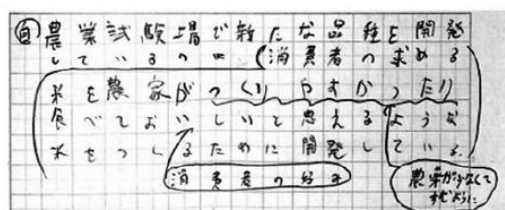 自 農業試験場で新たな品種を開発
しているのは(消費者の求める
米を農家がつくりやすかったり
食べておいしいと思えるような
米をつくるために開発している。
消費者の好み
農薬が少なくて
すむように